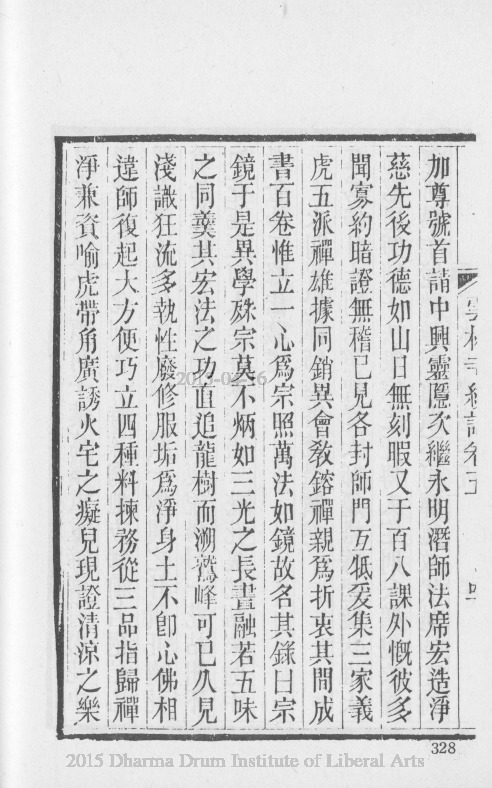 加尊號首請中興靈隱次繼永明潛師法席宏造淨
慈先後功德如山日無刻暇又于百八課外慨彼多
聞寡約暗證無稽已見各封師門互牴爰集三家義
虎五派禪雄據同銷異會教鎔禪親爲折衷其間成
書百卷惟立一心爲宗照萬法如鏡故名其錄曰宗
鏡于是異學殊宗莫不炳如三光之長晝融若五味
之同羹其宏法之功直追龍樹而溯鷲峰可已久見
淺識狂流多執性廢修服垢爲淨身土不卽心佛相
違師復起大方便巧立四種料揀務從三品指歸禪
淨兼資喻虎帶角廣誘火宅之癡兒現證清涼之樂
328
2015 Dharma Drum Institute of Liberal Arts